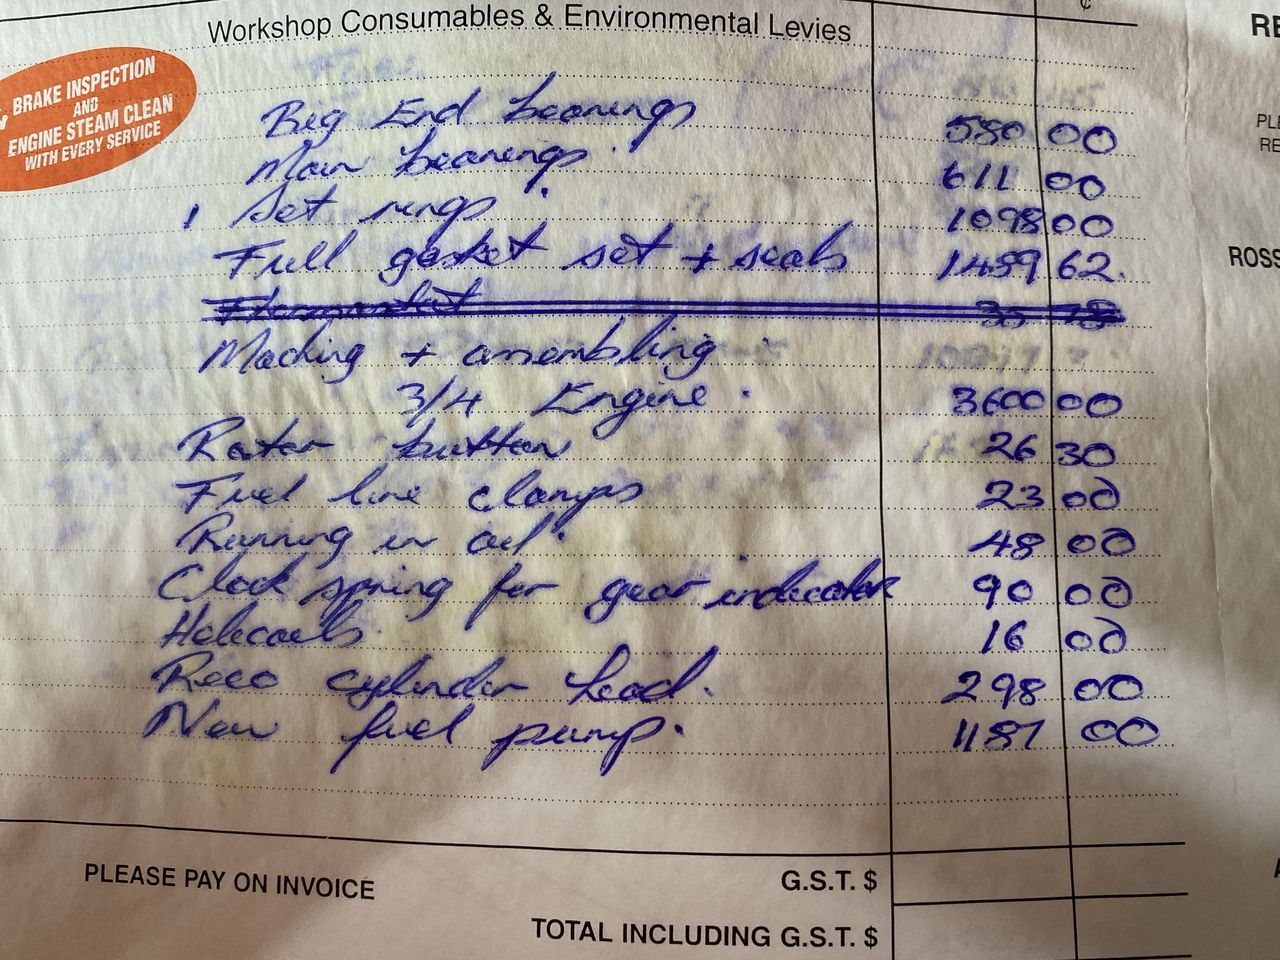 Workshop Consumables & Environmental Levies
¢
RE
BRAKE INSPECTION
AND
ENGINE STEAM CLEAN
WITH EVERY SERVICE
PLE
RE
ROSS
Big End bearings 580 00
Main bearings 611 00
1 Set rings 1098 00
Full gasket set + seals 1459 62
Maching + assembling
3/4 Engine 3600 00
Rotor button 26 30
Fuel line clamps 23 00
Running in oil 48 00
Clock spring for gear indicator 90 00
Helecoels 16 00
Reco cylinder head. 298 00
New fuel pump. 1187 00
PLEASE PAY ON INVOICE
G.S.T. $
TOTAL INCLUDING G.S.T. $